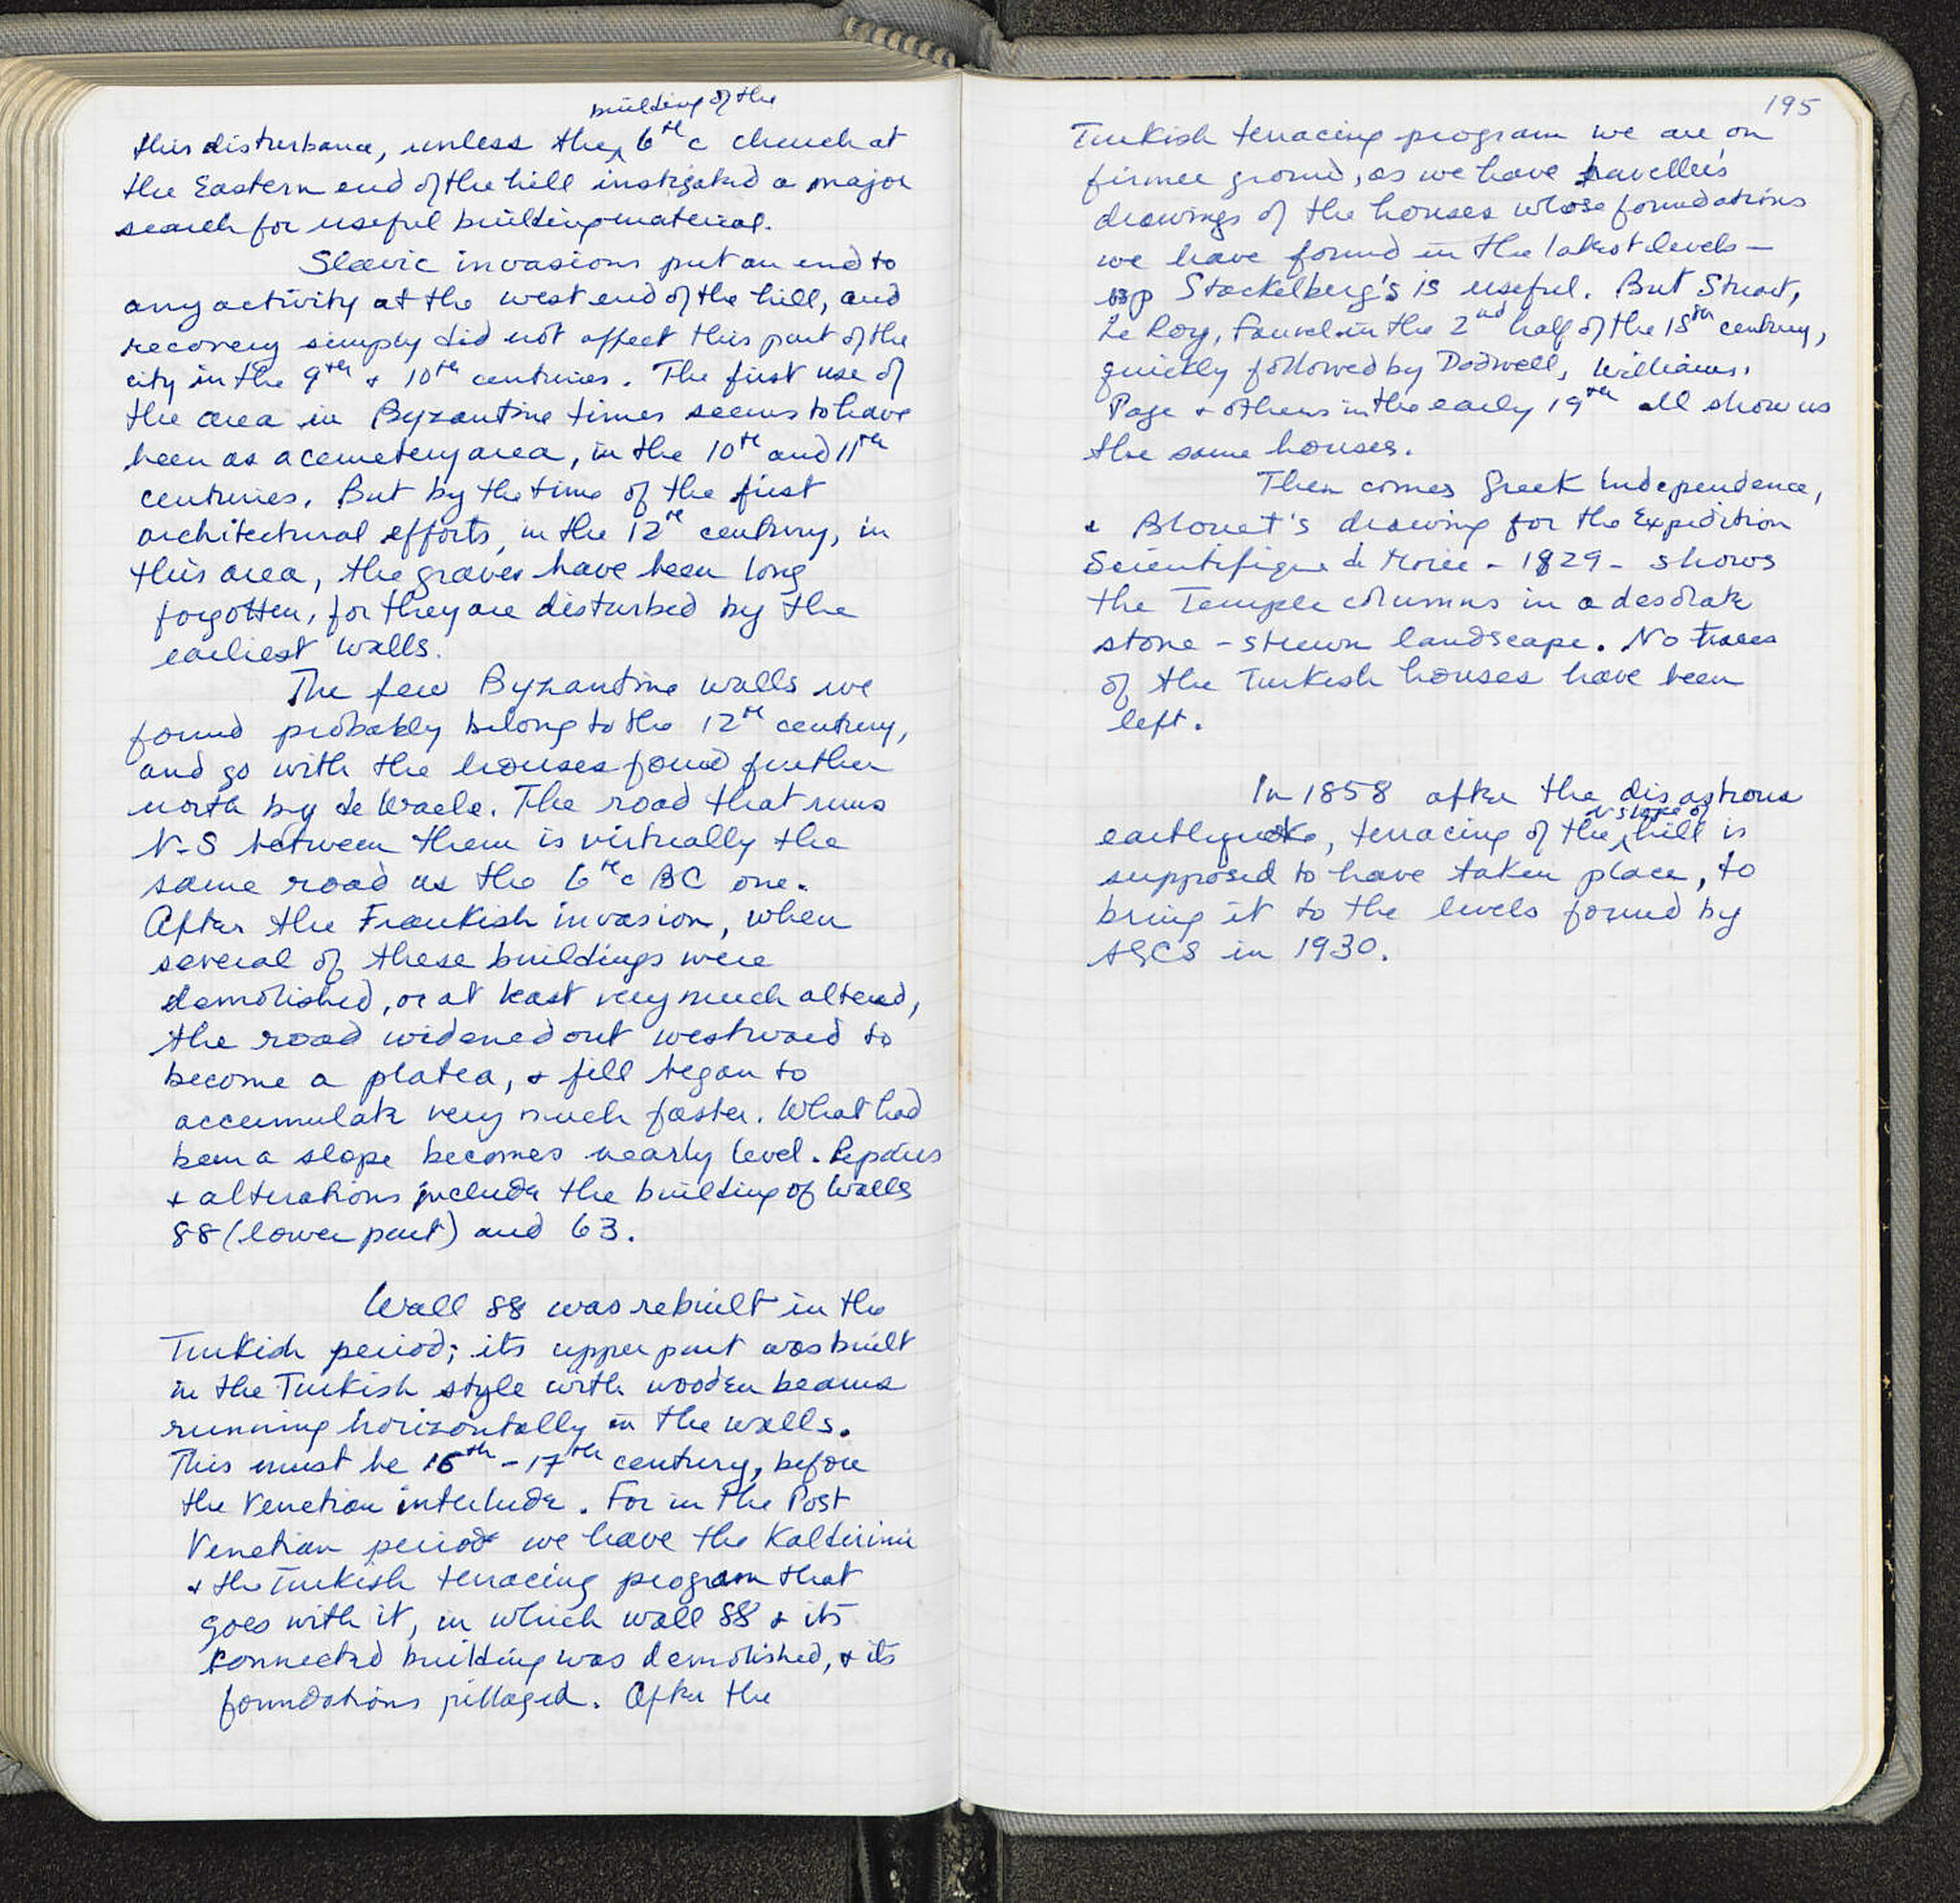 building of the
this disturbance, unless the ‸ 6th c church at
the Eastern end of the hill instigated a major
search for useful building material.
Slavic invasions put an end to
any activity at the west end of the hill, and
recovery simply did not affect this part of the
city in the 9th & 10th centuries. The first use of
the area in Byzantine times seems to have
been as a cemetery area, in the 10th and 11th
centuries. But by the time of the first
architectural efforts, in the 12th century, in
this area, the graves have been long
forgotten, for they are disturbed by the
earliest walls.
The few Byzantine walls we
found probably belong to the 12th century,
and go with the houses found further
north by de Waele. The road that runs
N-S between them is virtually the
same road as the 6th c BC one.
After the Frankish invasion, when
several of these buildings were
demolished, or at least very much altered,
the road widened out westward to
become a platea, & fill began to
accumulate very much faster. What had
been a slope becomes nearly level. Repairs
& alterations include the building of Walls
88 (lower part) and 63.
Wall 88 was rebuilt in the
Turkish period; its upper part was built
in the Turkish style with wooden beams
running horizontally in the walls.
This must be 16th - 17th century, before
the Venetian interlude. For in the Post
Venetian period we have the Kalderimi
& the Turkish terracing program that
goes with it, in which wall 88 & its
connected building was demolished, & its
foundations pillaged. After the
195
Turkish terracing program we are on
firmer ground, as we have traveller's
drawings of the houses whose foundations
we have found in the latest levels —
esp Stackelberg's is useful. But Stuart,
Le Roy, Fauvel in the 2nd half of the 18th century,
quickly followed by Dodwell, Williams,
Page & others in the early 19th all show us
the same houses.
Then comes Greek Independence,
& Blouet's drawing for the Expedition
Scientifique de Morée - 1829 - shows
the Temple columns in a desolate
stone-strewn landscape. No traces
of the Turkish houses have been
left.
In 1858 after the disastrous
N slope of
earthquake, terracing of the ‸ hill is
supposed to have taken place, to
bring it to the levels found by
ASCS in 1930.